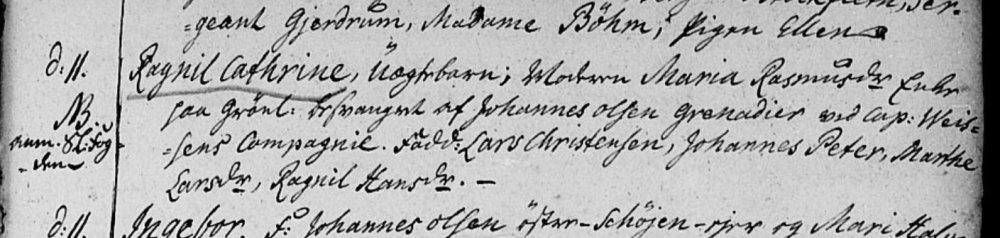 =geant Gjerdrum, Madame Böhm, Pigen Ellen
d: 11. Ragnil Cathrine, Uægtebarn; Moderen Maria Rasmusdr Enke
NB. paa Grönl: besvangret af Johannes olsen Grenadier ved Cap: Weis=
anm. St: Fog= =sens Compagnie. Fadd: Lars Christensen, Johannes Peter, Marthe
=den Larsdr, Ragnil Hansdr. —
d: 11. Ingebor, F: Johannes olsen öster-Schöjen-ejer og Mari